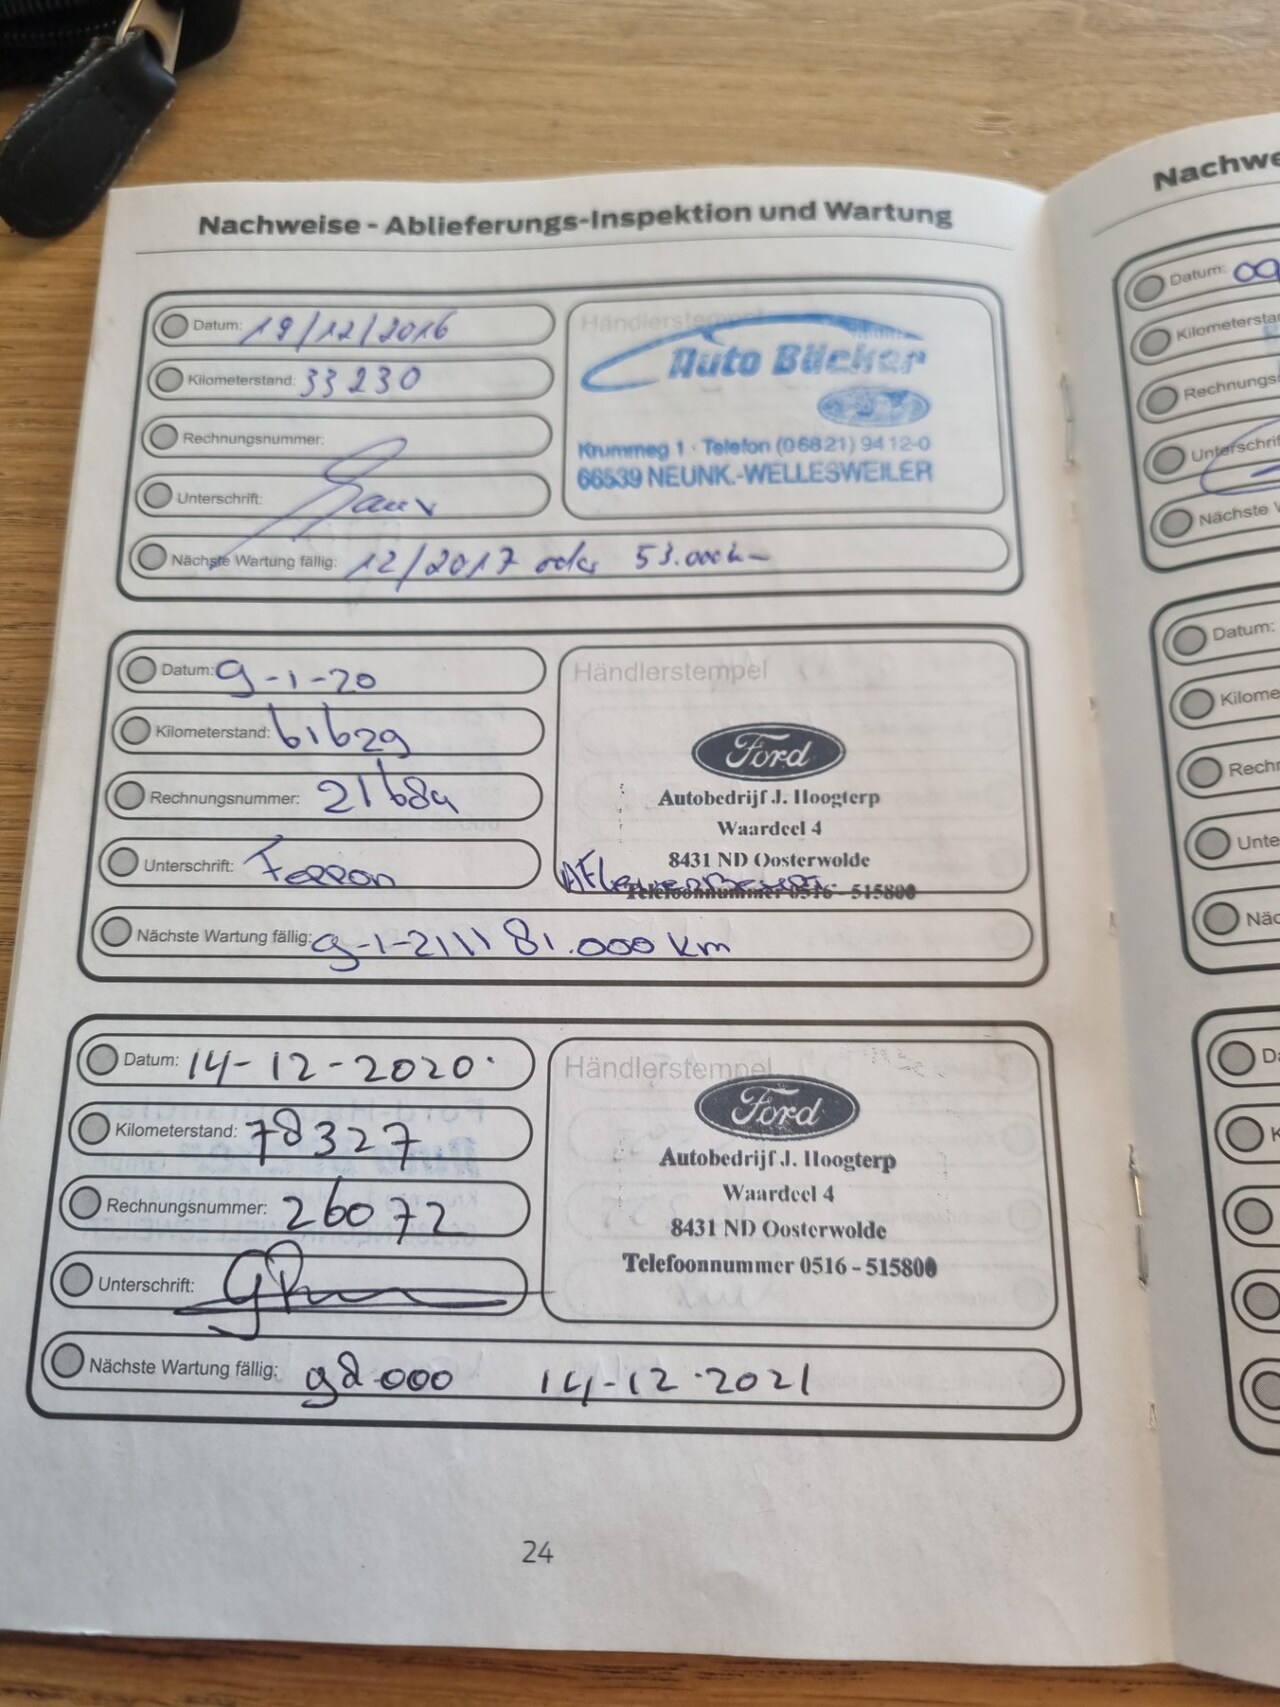 Nachweise - Ablieferungs-Inspektion und Wartung
Datum: 19/12/2016
Kilometerstand: 33230
Rechnungsnummer:
Unterschrift:
Nächste Wartung fällig: 12/2017 oder 53.000km
Händlerstempel
Auto Bücker
Krummeg 1 · Telefon (06821) 9412-0
66539 NEUNK.-WELLESWEILER
Datum: 9-1-20
Kilometerstand: 61629
Rechnungsnummer: 21684
Unterschrift:
Nächste Wartung fällig: 9-1-21 \\ 81.000 km
Händlerstempel
Ford
Autobedrijf J. Hoogterp
Waardeel 4
8431 ND Oosterwolde
Telefoonnummer 0516 - 515800
Datum: 14-12-2020
Kilometerstand: 78327
Rechnungsnummer: 26072
Unterschrift:
Nächste Wartung fällig: 98.000 14-12-2021
Händlerstempel
Ford
Autobedrijf J. Hoogterp
Waardeel 4
8431 ND Oosterwolde
Telefoonnummer 0516 - 515800
24
Nachwe
Datum: 09
Kilometersta
Rechnungs
Unterschrif
Nächste
Datum:
Kilome
Rech
Unte
Näc
Da
K